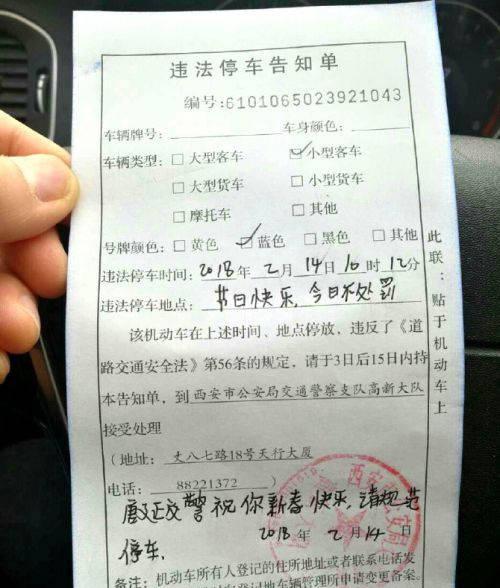 违法停车告知单
编号:6101065023921043
车辆牌号: 车身颜色:
车辆类型: □ 大型客车 ☑ 小型客车
□ 大型货车 □ 小型货车
□ 摩托车 □ 其他
号牌颜色: □ 黄色 ☑ 蓝色 □ 黑色 □ 其他
违法停车时间: 2018 年 2 月 14 日 10 时 12 分
违法停车地点: 节日快乐,今日不处罚
该机动车在上述时间、地点停放,违反了《道
路交通安全法》第56条的规定,请于3日后15日内持
本告知单,到西安市公安局交通警察支队高新大队
接受处理
(地址: 丈八七路18号天行大厦
电话: 88221372 )
交警祝你新春快乐,请规范
停车. 2018 年 2 月 14 日
备注:机动车所有人登记的住所地址或者联系电话发
登记地车辆管理所申请变更备案。
此联:贴于机动车上
西安